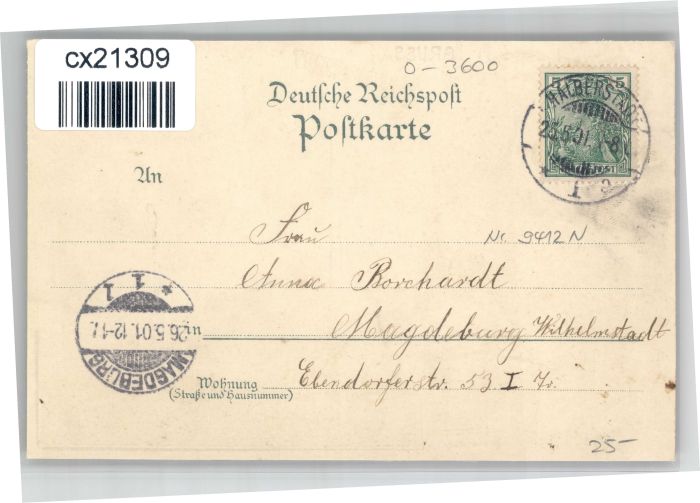 cx21309
0-3600
Deutsche Reichspost
Postkarte
5
HALBERSTADT
1
An
Frau
Nr. 9412 N
Anna Borchardt
in
Magdeburg Wilhelmstadt
Wohnung
(Straße und Hausnummer)
Ebendorferstr. 53 I Tr.
MAGDEBURG
26.5.01. 12-1
* 1 1
25-